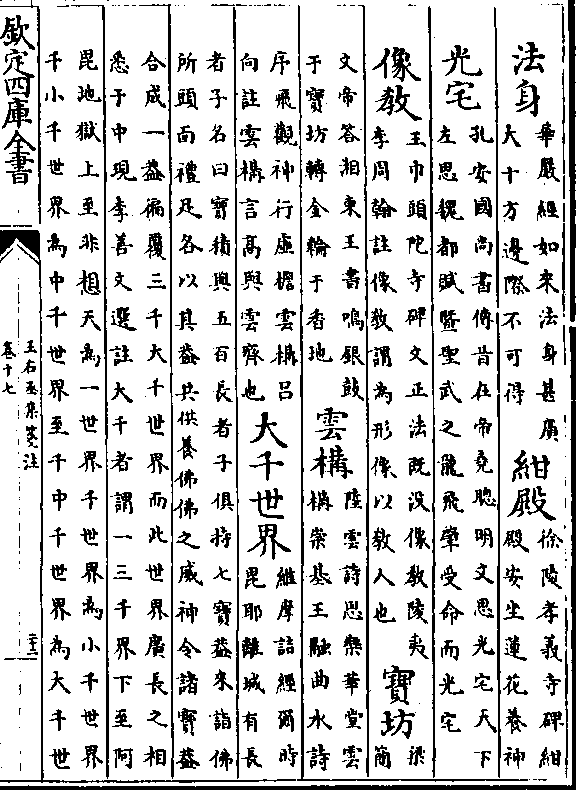 法身
華嚴經如來法身甚廣
大十方邊際不可得
紺殿
徐陵孝義寺碑紺
殿安坐蓮花養神
光宅
孔安國尚書傳昔在帝堯聰明文思光宅天下
左思魏都賦暨聖武之龍飛肇受命而光宅
像教
王巾頭陀寺碑文正法既沒像教陵夷
李周翰註像教謂為形像以教人也
寶坊
梁
簡
文帝答湘東王書鳴銀鼓
于寶坊轉金輪于香地
雲構
陸雲詩思樂華堂雲
構崇基王融曲水詩
序飛觀神行虛檐雲構呂
向註雲構言高與雲齊也
大千世界
維摩詰經爾時
毘耶離城有長
者子名曰寶積與五百長者子俱持七寶葢來詣佛
所頭面禮足各以其葢共供養佛佛之威神令諸寶葢
合成一葢徧覆三千大千世界而此世界廣長之相
悉于中現李善文選註大千者謂一三千界下至阿
毘地獄上至非想天為一世界千世界為小千世界
千小千世界為中千世界至千中千世界為大千世
欽定四庫全書
王右丞集箋注
卷十七